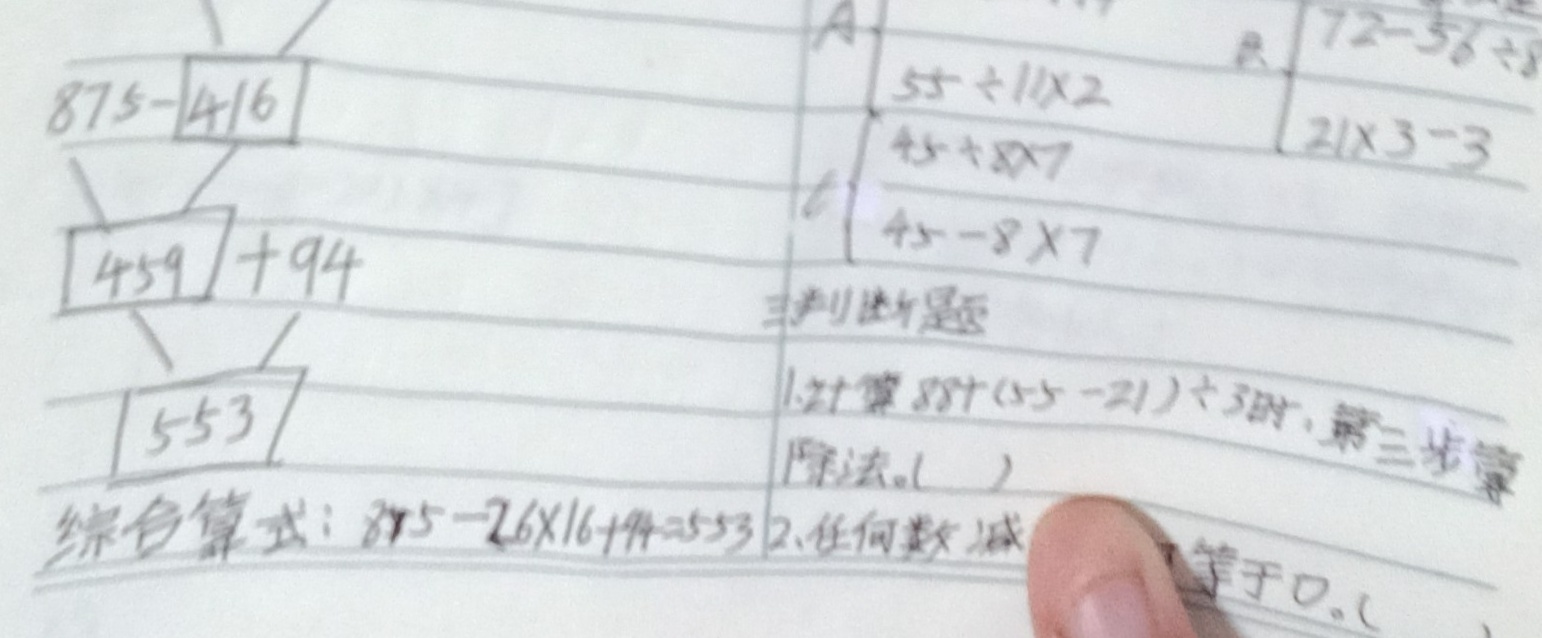 875-416
459+94
553
综合算式：875-26×16+94=553
A
55÷11×2
B
72-56÷8
21×3-3
C
45+8×7
45-8×7
三判断题
1.计算88+(55-21)÷3时，第三步算
除法。( )
2、任何数减
等于0。( )